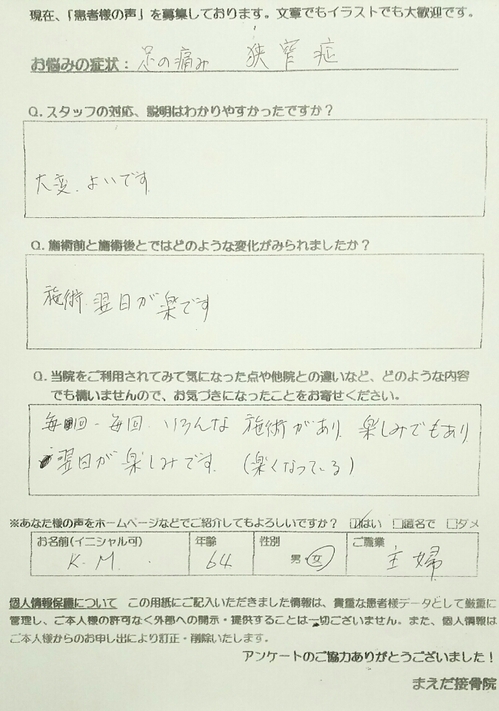 現在、「患者様の声」を募集しております。文章でもイラストでも大歓迎です。
お悩みの症状： 足の痛み 狭窄症
Q. スタッフの対応、説明はわかりやすかったですか？
大変、よいです
Q. 施術前と施術後とではどのような変化がみられましたか？
施術翌日が楽です
Q. 当院をご利用されてみて気になった点や他院との違いなど、どのような内容
でも構いませんので、お気づきになったことをお寄せください。
毎回、毎回、いろんな施術があり 楽しみでもあり
翌日が楽しみです。（楽くなっている）
※あなた様の声をホームページなどでご紹介してもよろしいですか？ ☑はい □匿名で □ダメ
お名前(イニシャル可) 年齢 性別 ご職業
K.M. 64 男・女 主婦
個人情報保護について この用紙にご記入いただきました情報は、貴重な患者様データとして厳重に
管理し、ご本人様の許可なく外部への開示・提供することは一切ございません。また、個人情報は
ご本人様からのお申し出により訂正・削除いたします。
アンケートのご協力ありがとうございました！
まえだ接骨院